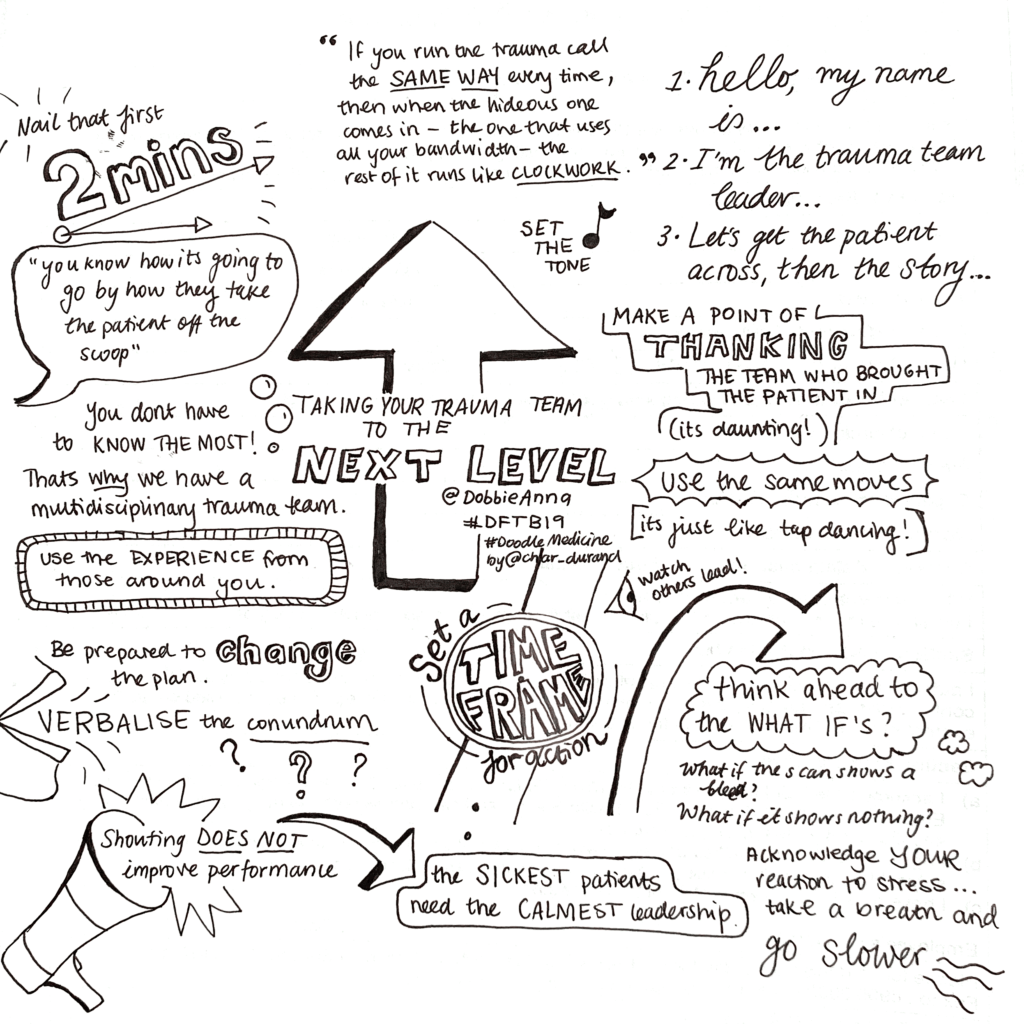 Nail that first
2 mins
"you know how its going to
go by how they take
the patient off the
scoop"
You dont have
to KNOW THE MOST!
Thats why we have a
multidisciplinary trauma team.
USE the EXPERIENCE from
those around you.
Be prepared to change
the plan.
VERBALISE the conundrum
? ? ?
Shouting DOES NOT
improve performance
“ If you run the trauma call
the SAME WAY every time,
then when the hideous one
comes in – the one that uses
all your bandwidth – the
rest of it runs like CLOCKWORK. ”
SET
THE
TONE
TAKING YOUR TRAUMA TEAM
TO THE
NEXT LEVEL
@DobbieAnna
#DFTB19
#Doodle Medicine
by@char_durand
Set a
TIME
FRAME
for action
the SICKEST patients
need the CALMEST leadership.
1. hello, my name
is...
2. I'm the trauma team
leader...
3. Let's get the patient
across, then the story...
MAKE A POINT OF
THANKING
THE TEAM WHO BROUGHT
THE PATIENT IN
(its daunting!)
USE the same moves
[its just like tap dancing!]
watch
others lead!
think ahead to
the WHAT IF'S?
What if the scan shows a
bleed?
What if it shows nothing?
Acknowledge YOUR
reaction to stress...
take a breath and
go slower